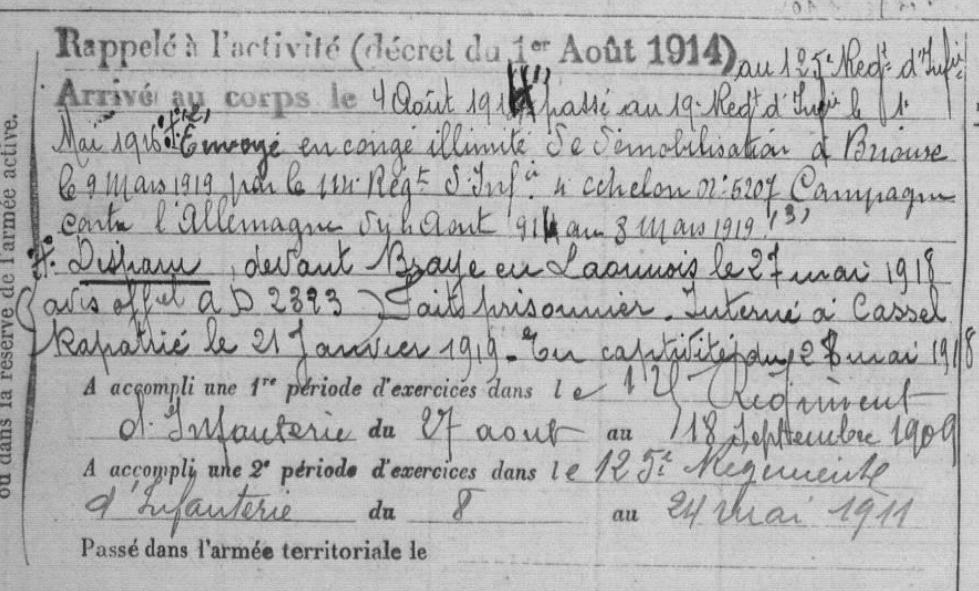 Rappelé à l'activité (décret du 1er Août 1914) au 125e Regt d'Infie
Arrivé au corps le 4 Août 1914 (1) passé au 19e Regt d'Infie le 1e
Mai 1916 (2) Envoyé en congé illimité de démobilisation à Briouse
le 9 Mars 1919 par le 114e Régt d'Infie 4 echelon no 5207 Campagne
contre l'Allemagne du 4 Aout 914 au 8 Mars 1919 (3)
Disparu devant Braye en Laonnois le 27 mai 1918
avis offel AD 2323) Fait prisonnier. Interné à Cassel
Rapatrié le 21 Janvier 1919 - En captivité du 28 mai 1918
A accompli une 1re période d'exercices dans le Regiment
d'Infanterie du 27 aout au 18 Septtembre 1909
A accompli une 2e période d'exercices dans le 125e Regimente
d'Infanterie du 8 au 24 mai 1911
Passé dans l'armée territoriale le
ou dans la réserve de l'armée active.